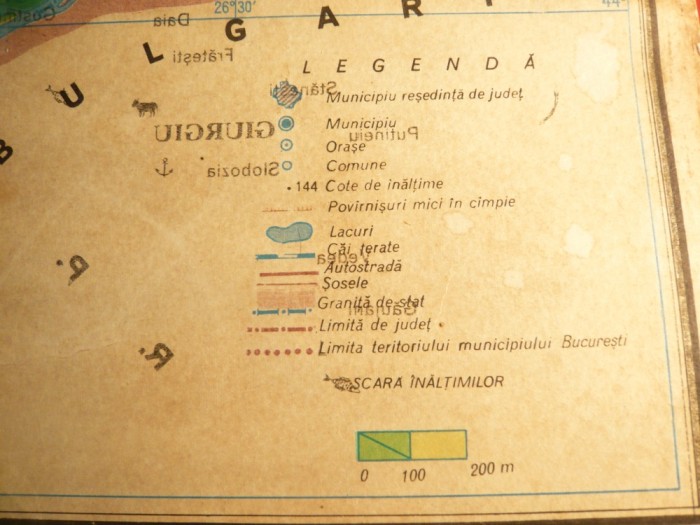 26°30'
44°
Daia
Frătești
B U L G A R
L E G E N D Ă
Stănești
Municipiu reședință de județ
GIURGIU
Municipiu
Putineiu
Orașe
Slobozia
Comune
.144 Cote de înălțime
Povîrnișuri mici în cîmpie
Lacuri
Căi ferate
Vedea
Autostradă
Șosele
Graniță de stat
Găujani
Limită de județ
Limita teritoriului municipiului București
R.
R.
SCARA ÎNĂLȚIMILOR
0 100 200 m